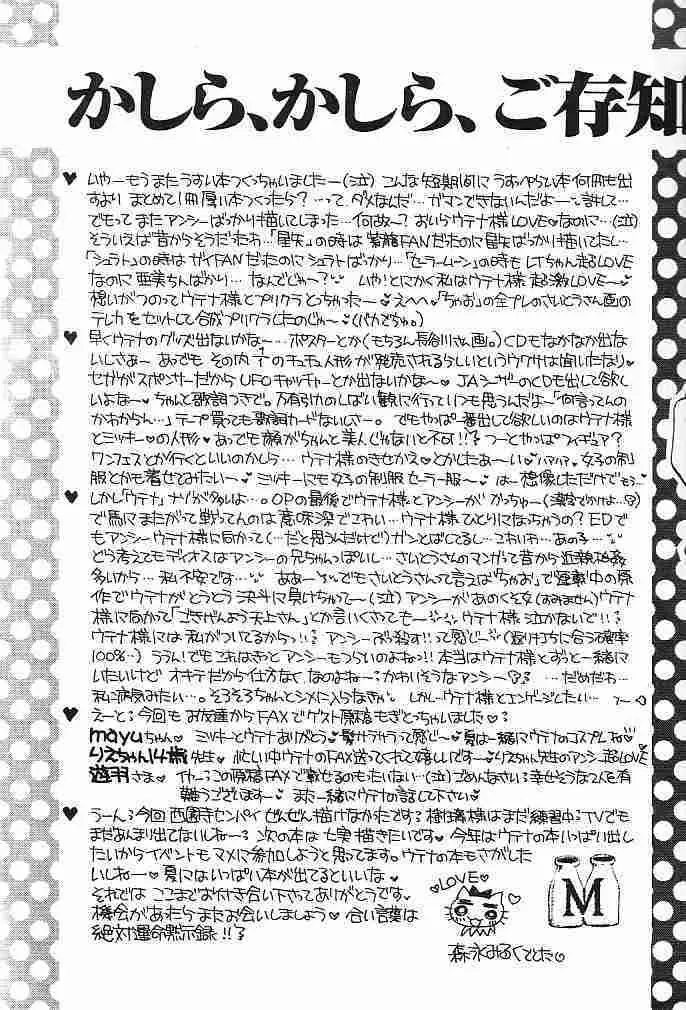 かしら、かしら、ご存知
♥ いやーもうまたうすい本つくっちゃいましたー(泣) こんな短期間にうすっぺらい本何冊も出
すよりまとめて1冊厚い本つくったら?…って、ダメなんだ…ガマンできないんだよー…許して…
でもってまたアンシーばっかり描いてしまった…何故〜?おいらウテナ様LOVE♡なのに…(泣)
そういえば昔からそうだったわ…「星矢」の時は紫龍FANだったのに星矢ばっかり描いてたし…
「シュラト」の時はガイFANだったのにシュラトばっかり…「セーラームーン」の時もLTちゃん超LOVE
なのに亜美ちんばっかり…なんでじゃー?いや!とにかく私はウテナ様超激LOVE〜♡
想いがつのってウテナ様とプリクラとっちったー♡えへへ。「ちゃお」の全プレのさいとうさん画の
テレカをセットして合成プリクラしたのじゃ〜(バカでちゅ。)
♥ 早くウテナのグッズ出ないかな〜…ポスターとか(もちろん長谷川さん画。)CDもなかなか出な
いしさぁー あっでもその内チュチュ人形が発売されるらしいというウワサは聞いたなり♡
セガがスポンサーだからUFOキャッチャーとか出ないかな〜♡ JAシーザーのCDも出して欲し
いよな〜♡ちゃんと歌詞つきで。万有引力のしばい観に行っていつも思うんだよ〜「何言ってんの
かわからん…」テープ買っても歌詞カードないしさー。でもやっぱ一番出して欲しいのはウテナ様
とミッキー♡の人形♡あっでも顔がちゃんと美人じゃないと不可!!つーとやっぱフィギュア?
ワンフェスとか行くといいのかしら…ウテナ様のきせかえ♡とかしたあーい♡ハアハア。女子の制
服とかも着せてみたいー♡ミッキーにも女子の制服セーラー服〜♡はー想像しただけでもう…
♥ しかし「ウテナ」ナゾが多いよ…。OPの最後でウテナ様とアンシーが
で馬にまたがって戦ってんのは意味深でこわい…ウテナ様ひとりになっちゃうの?EDで
もアンシーウテナ様に向かって(…だと思うんだけど)ガンとばしてるし…こわいわ…あの子…
どう考えてもディオスはアンシーの兄ちゃんっぽいし…さいとうさんのマンガって昔から近親相姦
多いから…私不安です… ああー でもさいとうさんって言えば「ちゃお」で連載中の原
作でウテナがとうとう決斗に負けちゃって〜(泣)アンシーがあのくそ女(すみません)ウテナ
様に向かって「ごきげんよう天上さん」とか言いくさってもーウテナ様泣かないで!!
ウテナ様には私がついてるから!!アンシーぶっ殺す!って感じ〜(返り討ちに合う確率
100%…)ううん!でもこれはきっとアンシーもつらいのよねっ!!本当はウテナ様とずっと一緒に
いたいけどオキテだから仕方なく…なのよねー かわいそうなアンシー… …だめだわ…
私病気みたい…。そろそろちゃんとシメに入らなきゃ。しかしウテナ様とエンゲージしたい…
♥ えーと 今回もお友達からFAXでゲスト原稿もぎとっちゃいました♡
mayuちゃん♡ ミッキーとウテナありがとう♡髪サラサラって感じ〜♡夏は一緒にウテナのコスプレね♡
りえちゃん14歳先生♡ 忙しい中ウテナのFAX送ってくれて嬉しいですー♡りえちゃん先生のアンシー超LOVE
遊羽さま♡ イヤーこの原稿FAXで載せるのもったいない…(泣)ごめんなさい 幸せそうな2人を有
難うございますー♡ また一緒にウテナの話して下さい♡
♥ うーん 今回西園寺センパイぜんぜん描けなかたです 樹璃様はまだ練習中 TVでも
まだあんまり出てないしね〜 次の本は七実描きたいです♡ 今年はウテナの本いっぱい出し
たいからイベントもマメに参加しようと思ってます。ウテナの本もさがした
いしねー♡夏にはいっぱい本が出てるといいな♡
それではここまでお付き合い下さってありがとうです。
機会があったらまたお会いしましょう♡合い言葉は
絶対運命黙示録!!
♡LOVE♡
M
森永みるくでした♡